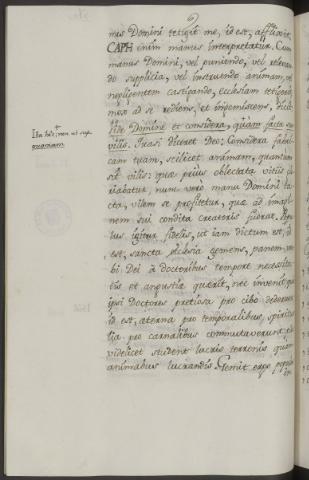 nus Domini tetigit me, id est, afflixit.
CAPH enim manus interpretatur. Cum
manus Domini, vel puniendo, vel relevan
do supplicia, vel instruendo animam, vel
negligentem castigando, ecclesiam tetigerit,
mox ad se rediens, et ingemiscens, dicit
Vide Domine et considera, quam facta sum
vilis. Quasi diceret Deo: Considera fabri
cam tuam, scilicet animam, quantum
sit vilis: quae prius oblectata vitiis
vabatur, nunc vero manu Domini ta
cta, vilem se profitetur, quae ad imagi
nem sui condita creatoris fuerat. Popu
lus igitur fidelis, ut iam dictum est, id
est, sancta ecclesia gemens, panem ver
bi Dei à doctoribus tempore necessita
tis et angustiae quaerit, nec invenit quia
ipsi Doctores pretiosa pro cibo dederunt
id est, aeterna pro temporalibus, spiritua
lia pro carnalibus commutaverunt,
videlicet student lucris terrenis quam
animabus lucrandis. Gemit ergo populus